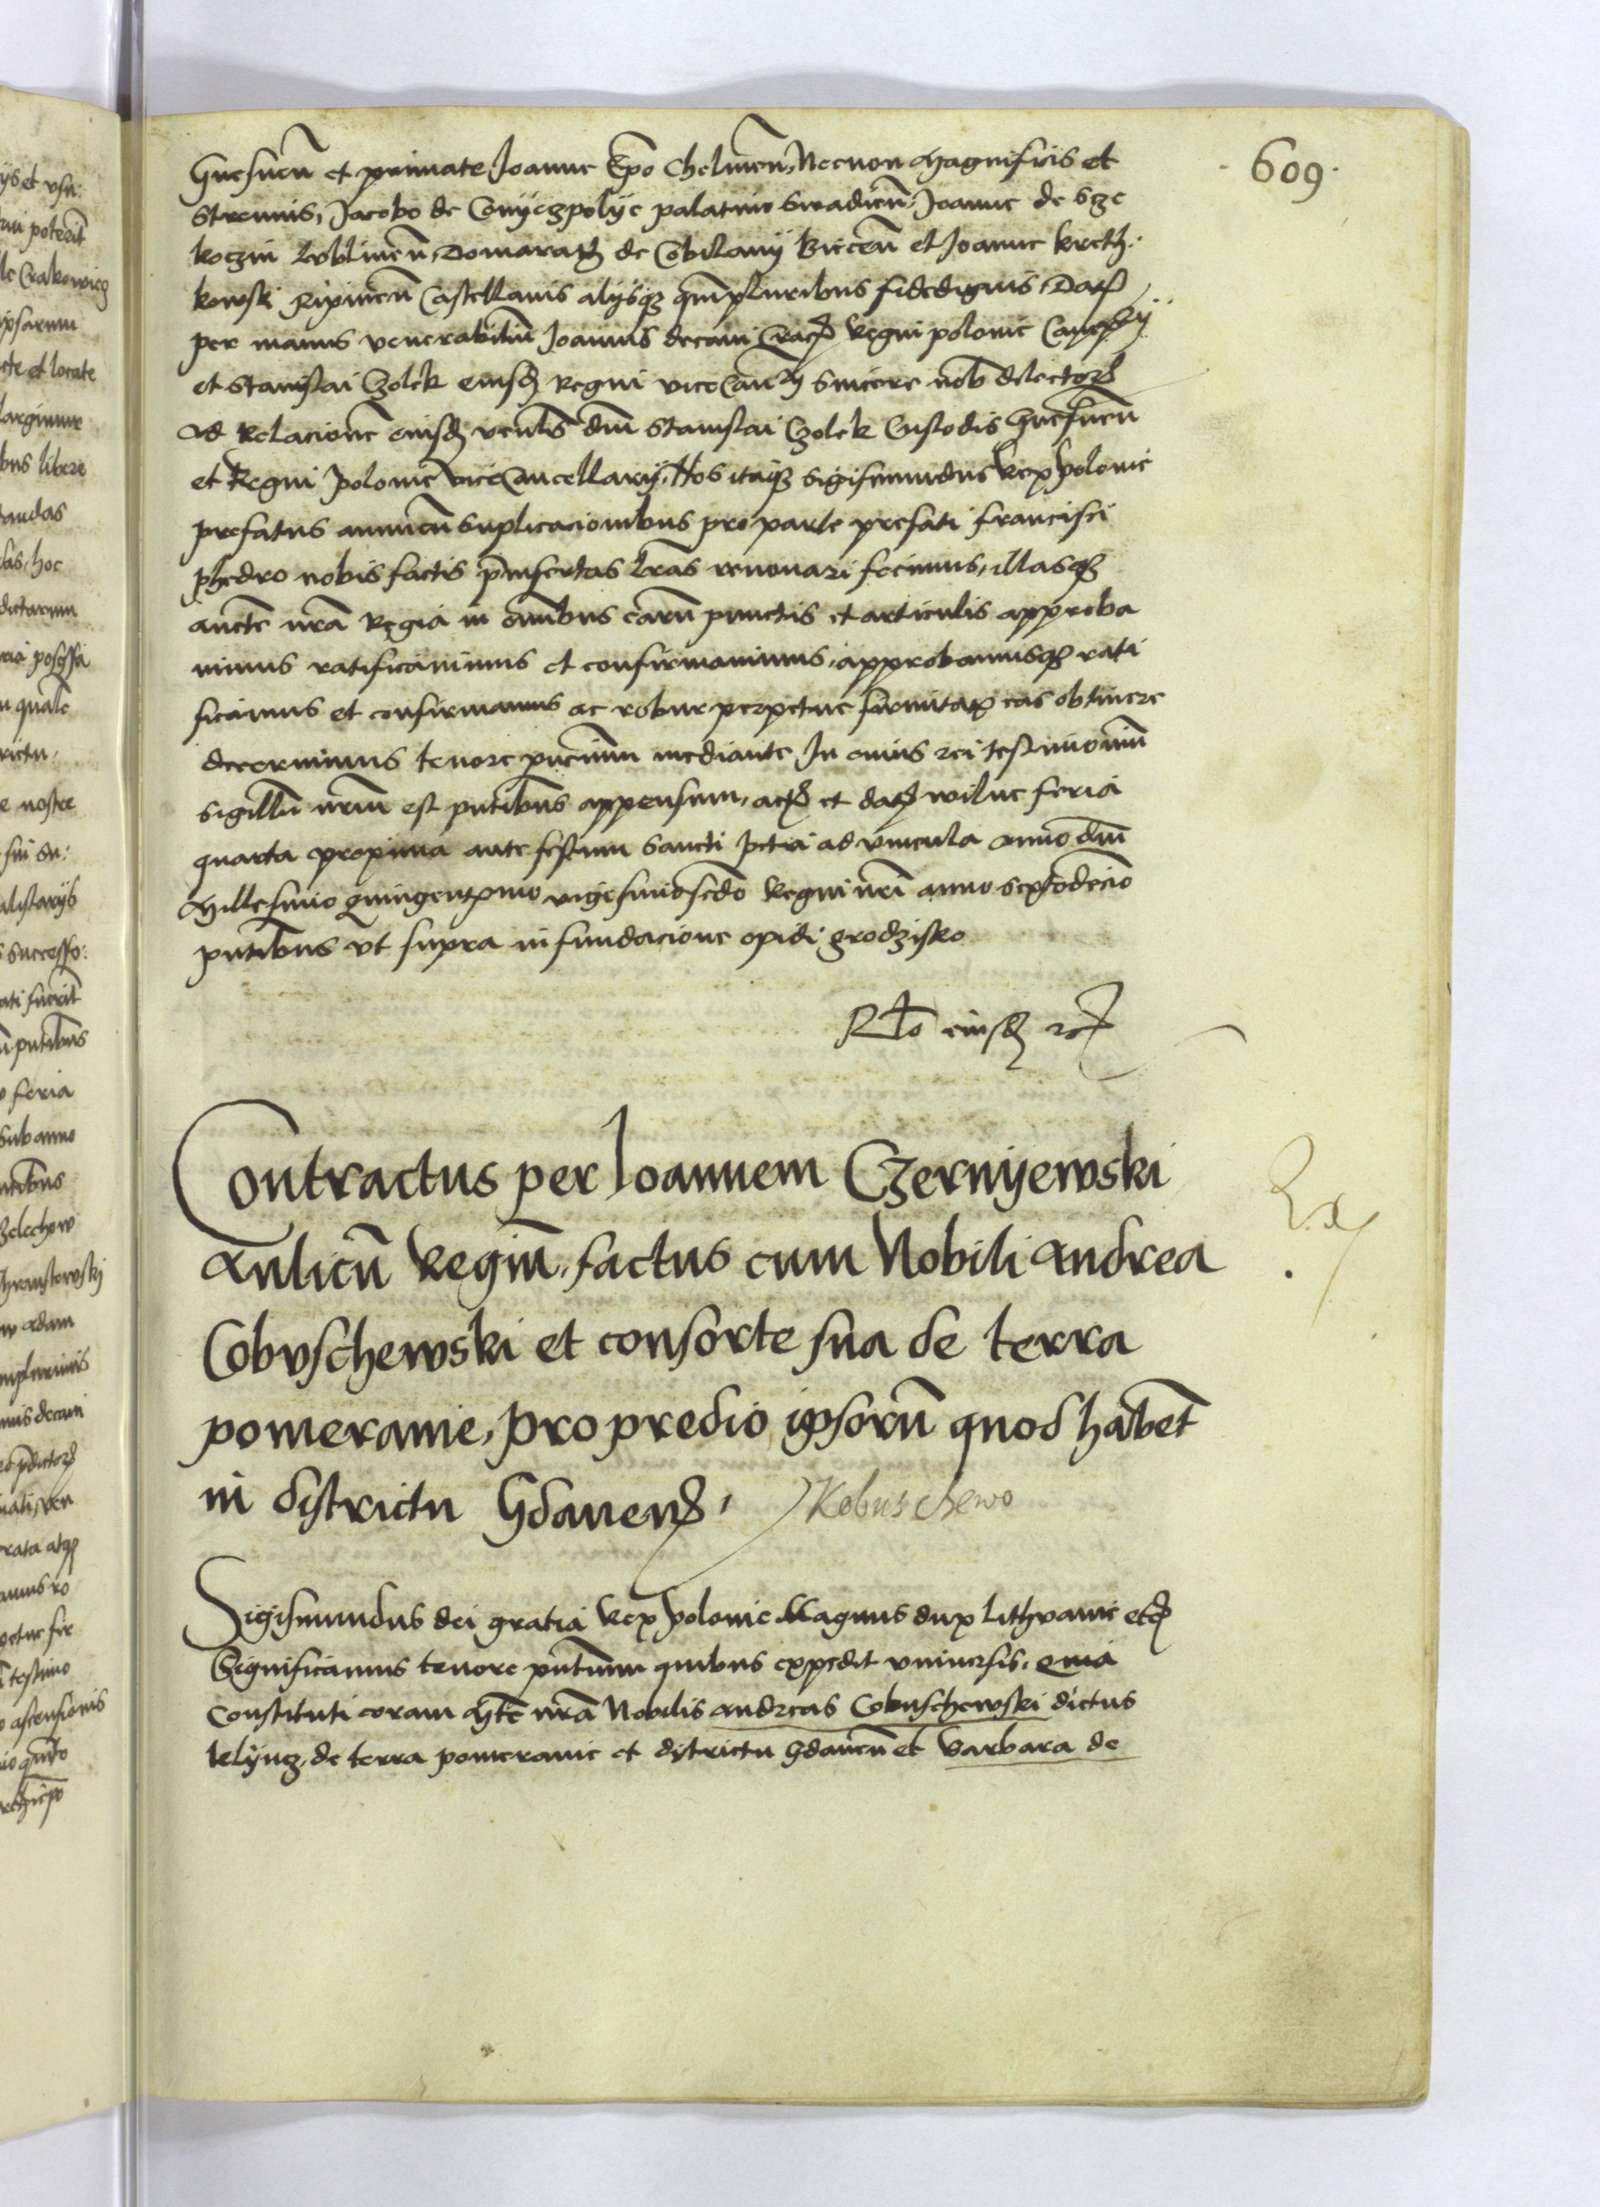 609.
Gnesnen̄ et primate Joanne Ep̄o Chelmen̄, Necnon Magnificis et
Strenuis, Jacobo de Conyeczpolye palatino Siradien̄, Joanne de Sze
koczin Lublinen̄, Domarath de Cobilany Biecen̄ et Joanne kreth.
kowski Ripinen̄ Castellanis alijsq3 q̄mpluribus fidedignis, Dat
per manus venerabiliū Joannis decani Crac Regni polonie Cancrij
et Stanislai Czolek eiusd Regni viceCancrij sincere nob dilector
Ad Relacionē eiusd ven̄lis dn̄i Stanislai Czolek Custodis Gnesnen̄
et Regni polonie viceCancellarij, Nos itaq3 Sigismundus Rex polonie
prefatus annuen̄ suplicacionibus pro parte prefati francisci
phedro nobis factis p̄insertas lr̄as renouari fecimus, illasq3
aucte nr̄a Regia in om̄ibus earū punctis et articulis approba
uimus ratificauimus et confirmauimus, approbamusq3 rati
ficamus et confirmamus ac robur perpetue firmitat eas obtinere
decernimus tenore p̄ncium mediante, In cuius rei testimoniū
sigillū nr̄m est p̄ntibus appensum, act et dat wilne feria
quarta proxima ante festum Sancti petri ad vincula anno dn̄i
Millesimo Quingentesimo vigesimosc̄do Regni nr̄i anno sextodecīo
p̄ntibus vt supra in fundacione opidi grodzisko
Rlo eiusd rc
Contractus per Joannem Czernijewski
Aulicū Regiū, factus cum Nobili Andrea
Cobuschewski et consorte sua de terra
pomeranie, pro predio ipsorū quod habet
in districtu Gdanen,
Kobuschewo
Sigismundus dei gratia Rex polonie Magnus dux Lithuanie etc
Significamus tenore p̄ntium quibus expedit vniuersis, Quia
Constituti coram Mte nr̄a Nobilis Andreas Cobuschewski dictus
klyncz, de terra pomeranie et ditrictu Gdanen̄ et Barbara de